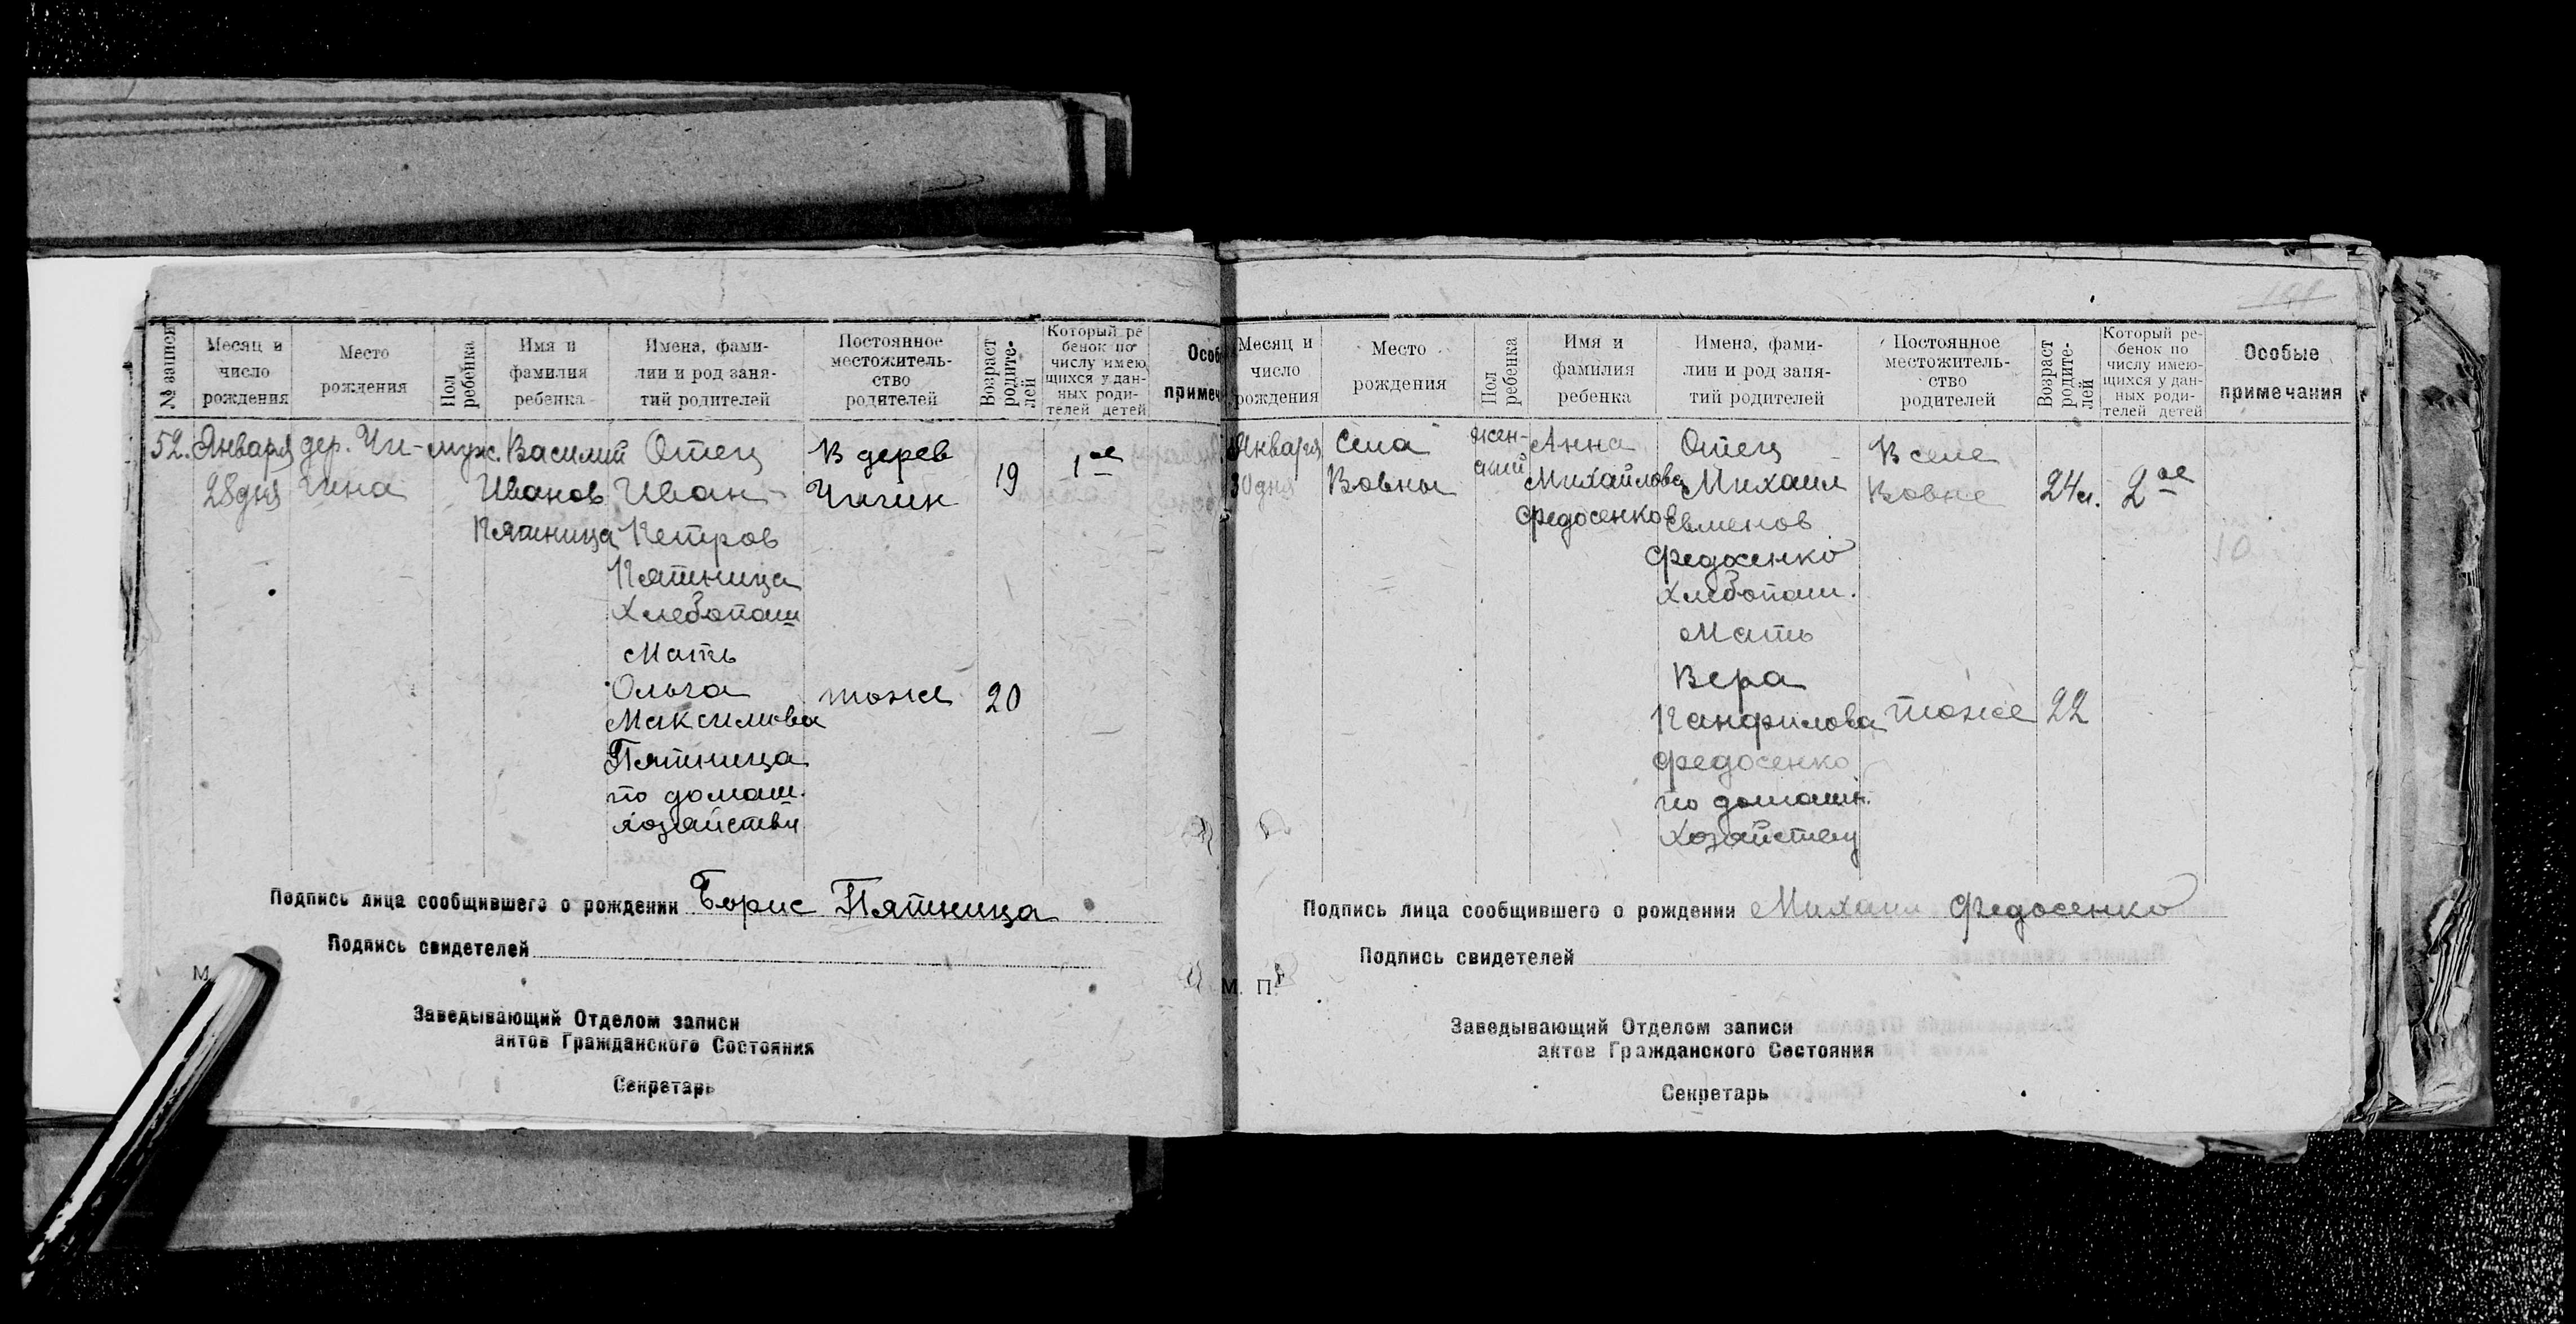 № записи
Месяц и
число
рождения
Место
рождения
Пол
ребенка
Имя и
фамилия
ребенка
Имена, фами-
лии и род заня-
тий родителей
Постоянное
местожитель-
ство
родителей
Возраст
родите-
лей
Который ре
бенок по
числу имею
щихся у дан-
ных роди-
телей детей
Особ
примеч
52.
Января
28 дня
дер. Чи-
гина
муж.
Василий
Иванов
Пятница
Отец
Иван
Петров
Пятница
Хлебопаш
Мать
Ольга
Максимова
Пятница
по домаш.
хозяйству
В дерев
Чигин
тоже
19
20
1ое
Подпись лица сообщившего о рождении Борис Пятница
Подпись свидетелей
М.
Заведывающий Отделом записи
актов Гражданского Состояния
Секретарь
Месяц и
число
рождения
Место
рождения
Пол
ребенка
Имя и
фамилия
ребенка
Имена, фами-
лии и род заня-
тий родителей
Постоянное
местожитель-
ство
родителей
Возраст
родите-
лей
Который ре-
бенок по
числу имею-
щихся у дан-
ных роди-
телей детей
Особые
примечания
Января
30 дня
Села
Вовны
жен-
ский
Анна
Михайлова
Федосенков
Отец
Михаил
Евменов
Федосенко
Хлебопаш.
Мать
Вера
Панфилова
Федосенко
по домашн.
хозяйству
В селе
Вовне
тоже
24 л.
22
2ое
Подпись лица сообщившего о рождении Михаил Федосенко
Подпись свидетелей
М. П.
Заведывающий Отделом записи
актов Гражданского Состояния
Секретарь